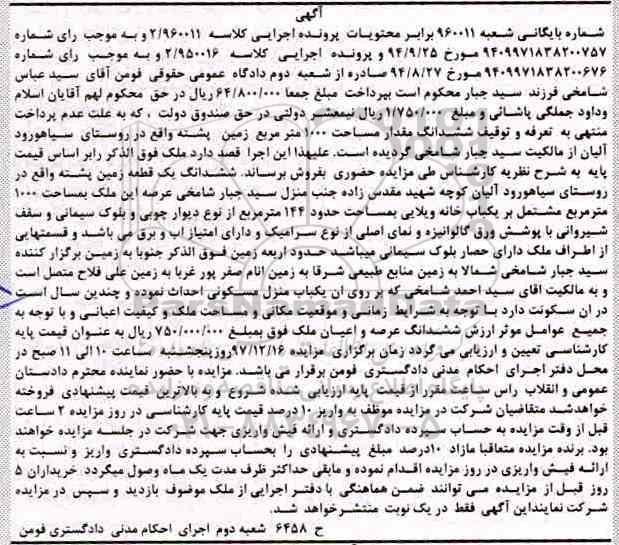 آگهی
شماره بایگانی شعبه ۹۶۰۰۱۱ برابر محتویات پرونده اجرایی کلاسه ۲/۹۶۰۰۱۱ و به موجب رای شماره
۹۴۰۹۹۷۱۸۳۸۲۰۰۷۵۷ مورخ ۹۴/۹/۲۵ و پرونده اجرایی کلاسه ۲/۹۵۰۰۱۶ و به موجب رای شماره
۹۴۰۹۹۷۱۸۳۸۲۰۰۶۷۶ مورخ ۹۴/۸/۲۷ صادره از شعبه دوم دادگاه عمومی حقوقی فومن آقای سید عباس
شامخی فرزند سید جبار محکوم است بپرداخت مبلغ جمعا ۶۴/۸۰۰/۰۰۰ ریال در حق محکوم لهم آقایان اسلام
وداود جملگی پاشائی و مبلغ ۱/۷۵۰/۰۰۰ ریال نیمعشر دولتی در حق صندوق دولت ، که به علت عدم پرداخت
منتهی به تعرفه و توقیف ششدانگ مقدار مساحت ۱۰۰۰ متر مربع زمین پشته واقع در روستای سیاهورود
آلیان از مالکیت سید جبار شامخی گردیده است. علیهذا این اجرا قصد دارد ملک فوق الذکر رابر اساس قیمت
پایه به شرح نظریه کارشناس طی مزایده حضوری بفروش برساند. ششدانگ یک قطعه زمین پشته واقع در
روستای سیاهورود آلیان کوچه شهید مقدس زاده جنب منزل سید جبار شامخی عرصه این ملک بمساحت ۱۰۰۰
مترمربع مشتمل بر یکباب خانه ویلایی بمساحت حدود ۱۴۴ مترمربع از نوع دیوار چوبی و بلوک سیمانی و سقف
شیروانی با پوشش ورق گالوانیزه و نمای اصلی از نوع سرامیک و دارای امتیاز اب و برق می باشد و قسمتهایی
از اطراف ملک دارای حصار بلوک سیمانی میباشد حدود اربعه زمین فوق الذکر جنوبا به زمین برگزار کننده
سید جبار شامخی شمالا به زمین منابع طبیعی شرقا به زمین انام صفر پور غربا به زمین علی فلاح متصل است
و به مالکیت اقای سید احمد شامخی که بر روی ان یکباب منزل مسکونی احداث نموده و چندین سال است
در ان سکونت دارد با توجه به شرایط زمانی و موقعیت مکانی و مساحت ملک و کیفیت اعیانی و با توجه به
جمیع عوامل موثر ارزش ششدانگ عرصه و اعیان ملک فوق بمبلغ ۷۵۰/۰۰۰/۰۰۰ ریال به عنوان قیمت پایه
کارشناسی تعیین و ارزیابی می گردد زمان برگزاری مزایده ۹۷/۱۲/۱۶ روز پنجشنبه ساعت ۱۰ الی ۱۱ صبح در
محل دفتر اجرای احکام مدنی دادگستری فومن برقرار می باشد. مزایده با حضور نماینده محترم دادستان
عمومی و انقلاب راس ساعت مقرر از قیمت پایه ارزیابی شده شروع و به بالاترین قیمت پیشنهادی فروخته
خواهدشد متقاضیان شرکت در مزایده موظف به واریز ۱۰ درصد قیمت پایه کارشناسی در روز مزایده ۲ ساعت
قبل از وقت مزایده به حساب سپرده دادگستری و ارائه فیش واریزی جهت شرکت در جلسه مزایده خواهند
بود. برنده مزایده متعاقبا مازاد ۱۰درصد مبلغ پیشنهادی را بحساب سپرده دادگستری واریز و نسبت به
ارائه فیش واریزی در روز مزایده اقدام نموده و مابقی حداکثر ظرف مدت یک ماه وصول میگردد. خریداران ۵
روز قبل از مزایده می توانند ضمن هماهنگی با دفتر اجرایی از ملک موضوف بازدید و سپس در مزایده
شرکت نماینداین آگهی فقط در یک نوبت منتشرخواهد شد.
ح ۶۴۵۸ شعبه دوم اجرای احکام مدنی دادگستری فومن